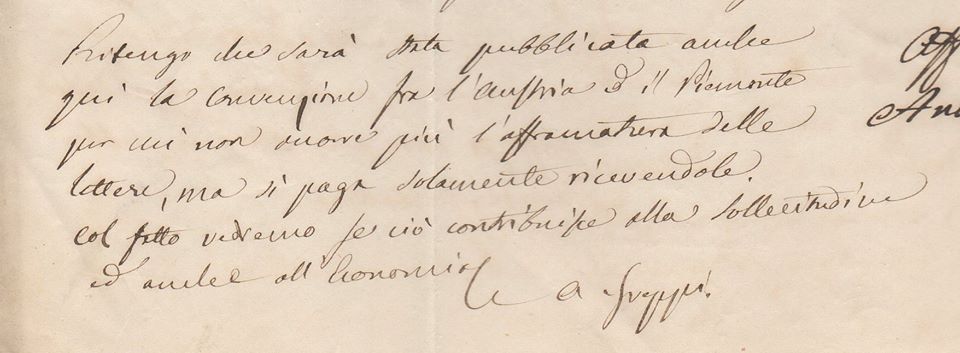 Ritengo che sarà stata pubblicata anche
qui la convenzione fra l'Austria ed il Piemonte
per cui non occorre più l'affrancatura delle
lettere, ma si paga solamente ricevendole.
col fatto vedremo se ciò contribuisce alla sollecitudine
ed anche all'Economia
A Greppi.
Aff
An